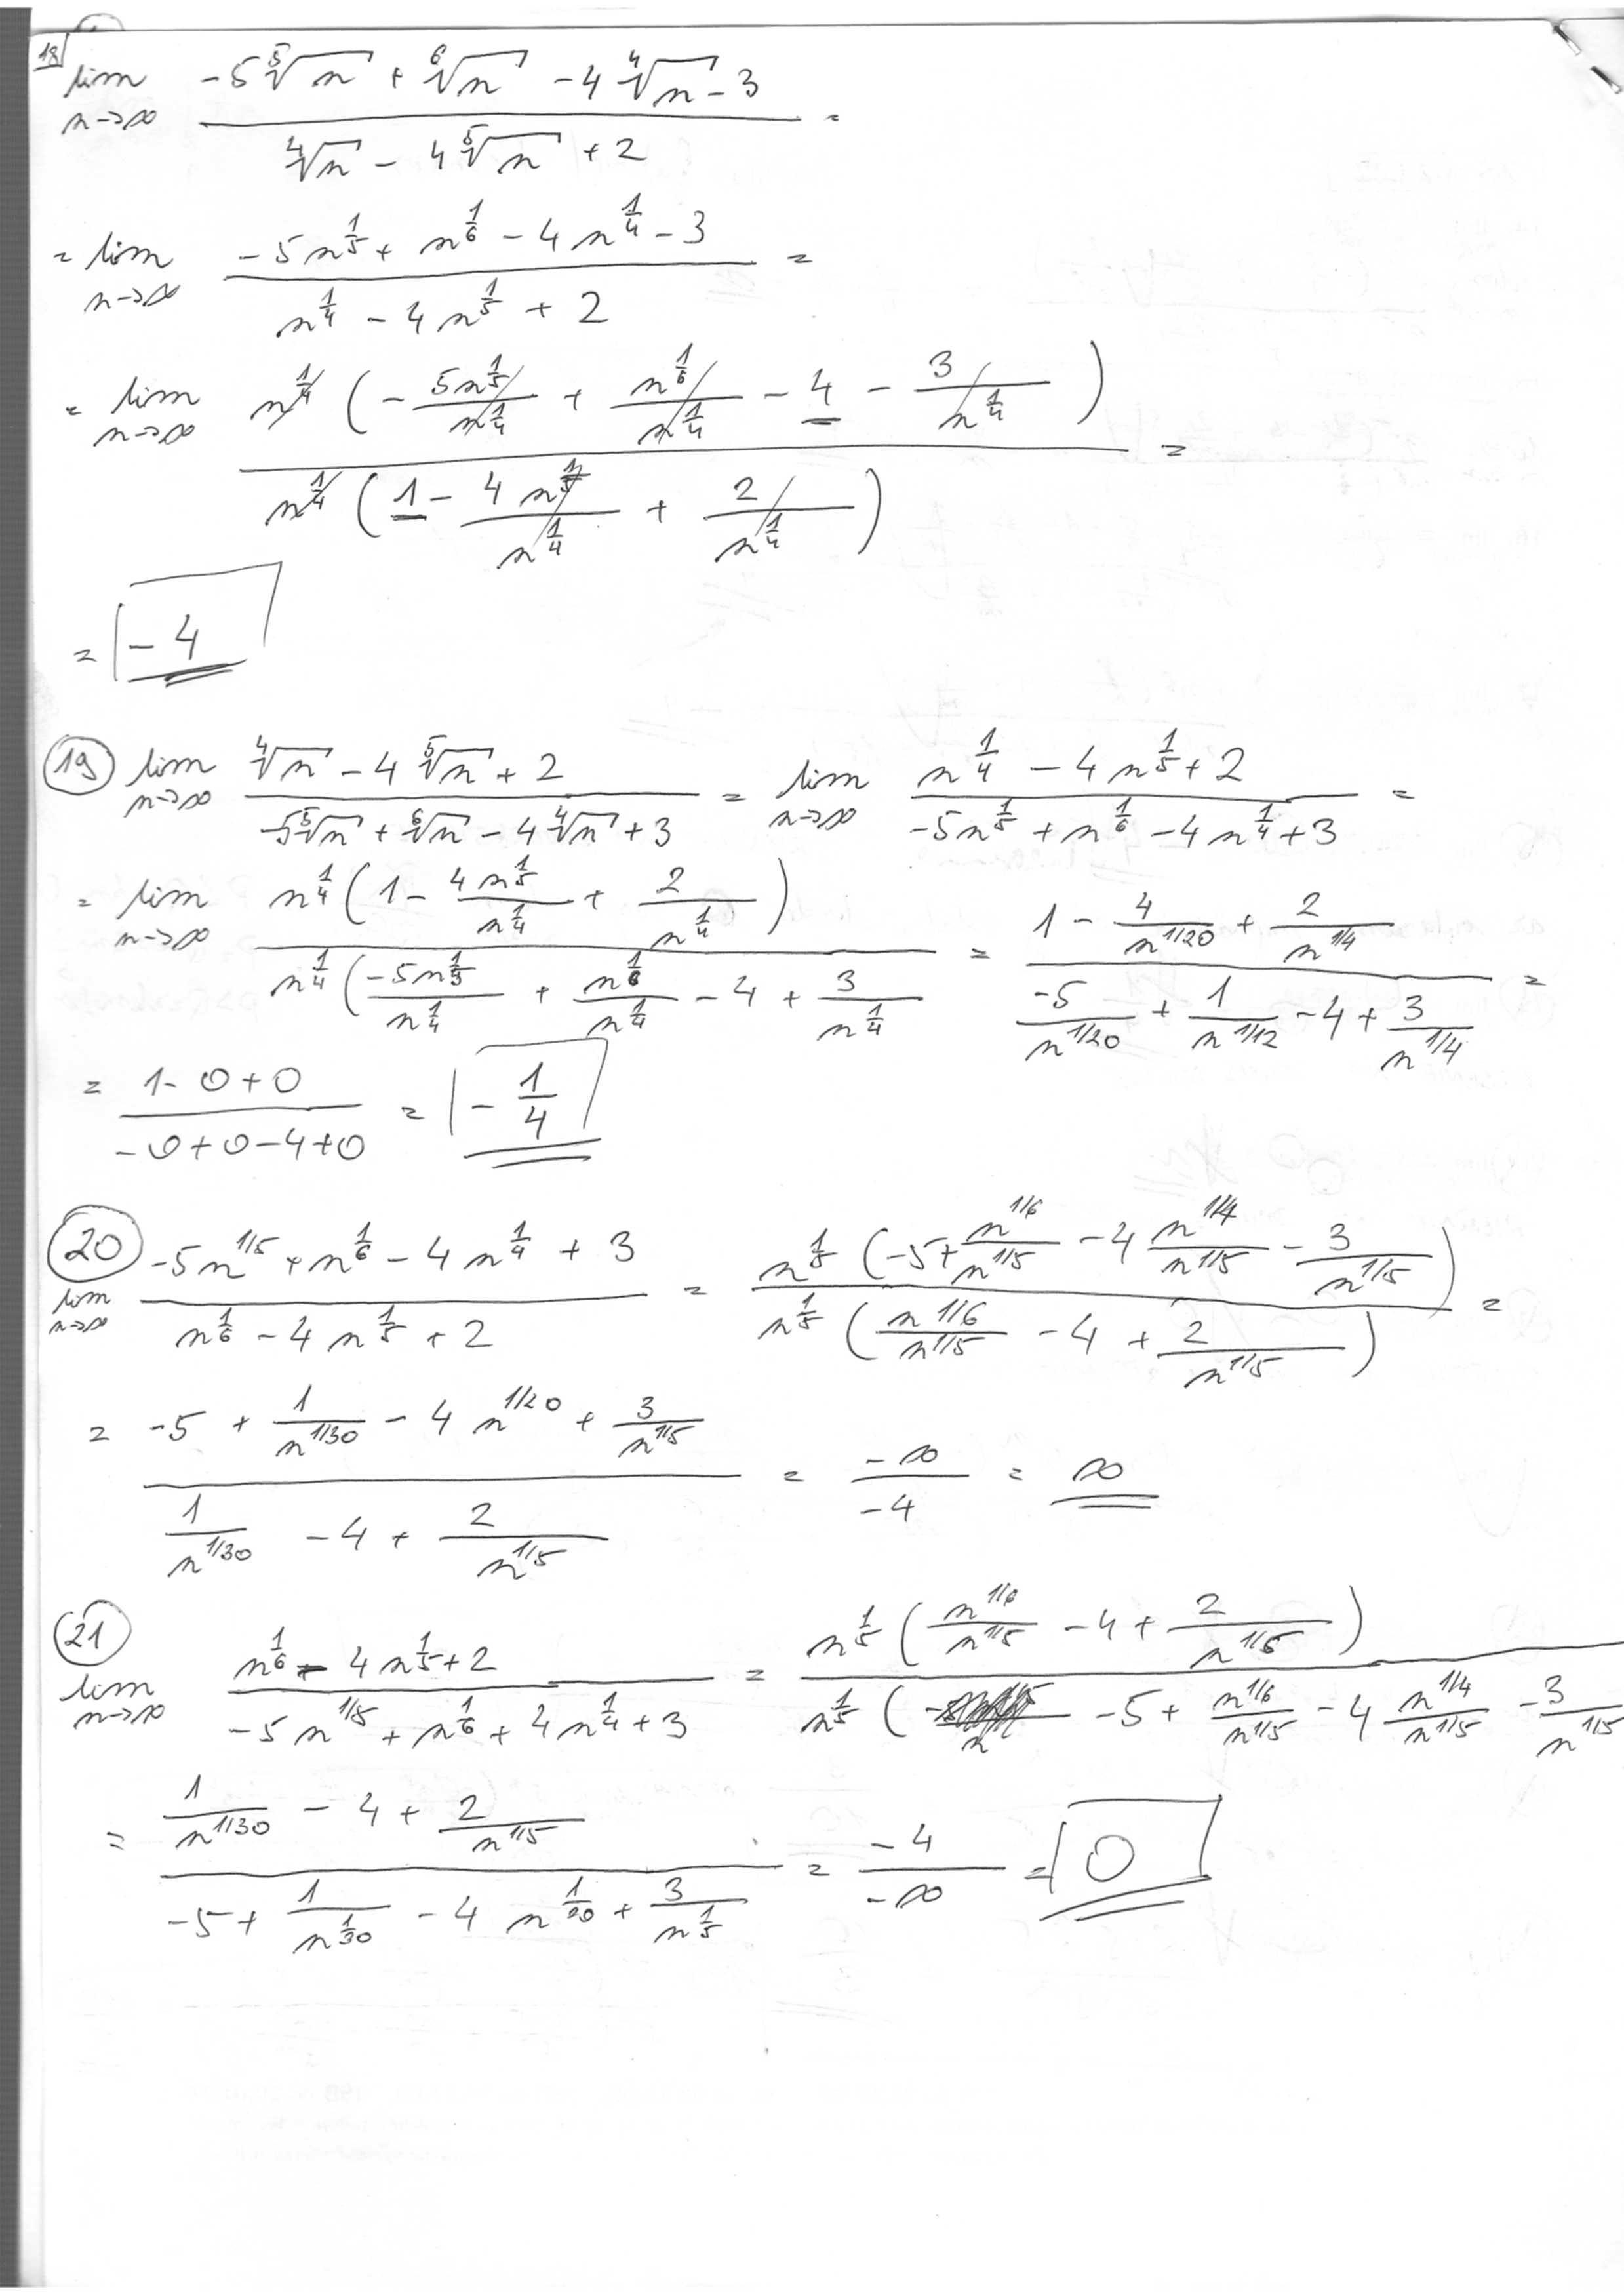 18 lim n→∞ (-5 ⁵√n + ⁶√n - 4 ⁴√n - 3) / (⁴√n - 4 ⁵√n + 2) =
= lim n→∞ (-5n^(1/5) + n^(1/6) - 4n^(1/4) - 3) / (n^(1/4) - 4n^(1/5) + 2) =
= lim n→∞ n^(1/4) (-5n^(1/5)/n^(1/4) + n^(1/6)/n^(1/4) - 4 - 3/n^(1/4)) / n^(1/4) (1 - 4n^(1/5)/n^(1/4) + 2/n^(1/4)) =
= -4
19 lim n→∞ (⁴√n - 4 ⁵√n + 2) / (-5 ⁵√n + ⁶√n - 4 ⁴√n + 3) = lim n→∞ (n^(1/4) - 4n^(1/5) + 2) / (-5n^(1/5) + n^(1/6) - 4n^(1/4) + 3) =
= lim n→∞ n^(1/4) (1 - 4n^(1/5)/n^(1/4) + 2/n^(1/4)) / n^(1/4) (-5n^(1/5)/n^(1/4) + n^(1/6)/n^(1/4) - 4 + 3/n^(1/4) = (1 - 4/n^(1/20) + 2/n^(1/4)) / (-5/n^(1/20) + 1/n^(1/12) - 4 + 3/n^(1/4)) =
= (1 - 0 + 0) / (-0 + 0 - 4 + 0) = -1/4
20 lim n→∞ (-5n^(1/5) + n^(1/6) - 4n^(1/4) + 3) / (n^(1/6) - 4n^(1/5) + 2) = n^(1/5) (-5 + n^(1/6)/n^(1/5) - 4 n^(1/4)/n^(1/5) - 3/n^(1/5)) / n^(1/5) (n^(1/6)/n^(1/5) - 4 + 2/n^(1/5)) =
= (-5 + 1/n^(1/30) - 4n^(1/20) + 3/n^(1/5)) / (1/n^(1/30) - 4 + 2/n^(1/5)) = -∞/-4 = ∞
21 lim n→∞ (n^(1/6) - 4n^(1/5) + 2) / (-5n^(1/5) + n^(1/6) + 4n^(1/4) + 3) = n^(1/5) (n^(1/6)/n^(1/5) - 4 + 2/n^(1/5)) / n^(1/5) (-5 + n^(1/6)/n^(1/5) - 4 n^(1/4)/n^(1/5) - 3/n^(1/5)
= (1/n^(1/30) - 4 + 2/n^(1/5)) / (-5 + 1/n^(1/30) - 4n^(1/20) + 3/n^(1/5)) = -4/-∞ = 0